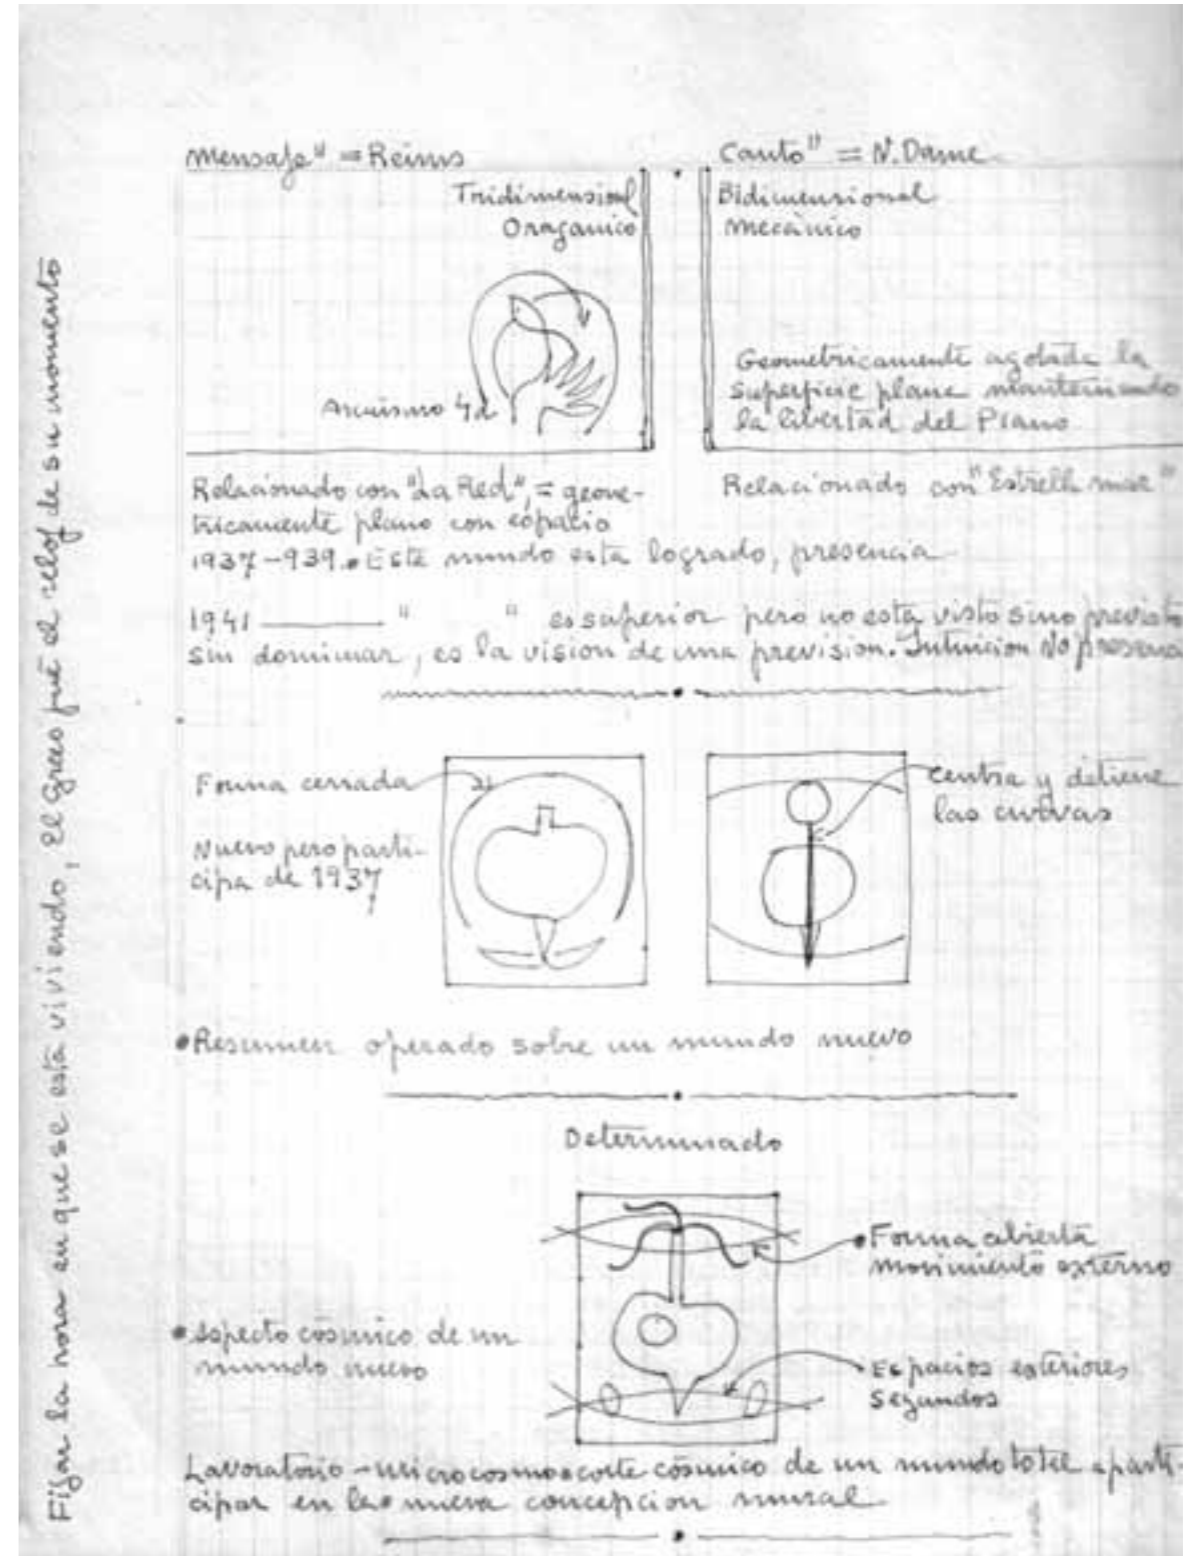 Mensaje" = Reims
Tridimensional
Oraganico
Arcuismo 4d
Canto" = N. Dame
Bidimensional
mecánico
Geometricamente agotada la
superficie plana manteniendo
la libertad del Plano
Relacionado con "La Red", = geome-
tricamente plano con espacio
Relacionado con "Estrell mar"
1937-939. Este mundo esta logrado, presencia
1941 ——— " " es superior pero no esta visto sino previsto
sin dominar, es la vision de una prevision. Intuicion No presencia
Forma cerrada
Nuevo pero parti-
cipa de 1937
centra y detiene
las curvas
Resumen operado sobre un mundo nuevo
Determinado
Forma abierta
movimiento externo
Aspecto cósmico de un
mundo nuevo
Espacios exteriores
segundos
Lavoratorio - microcosmos corte cósmico de un mundo total a parti-
cipar en la nueva concepcion mural
Fijar la hora en que se está viviendo, El Greco fué el reloj de su momento